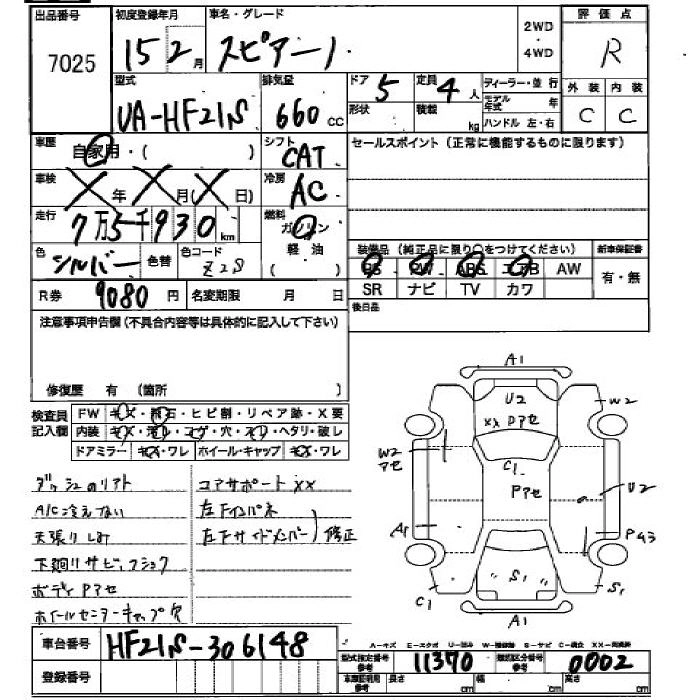 出品番号 初度登録年月 車名・グレード 2WD・4WD 評価点
7025 15 2月 スピアーノ R
型式 排気量 ドア 5 定員 4人 ディーラー・並行 外装 内装
UA-HF21S 660cc 形状 積載 kg モデル年式 年 C C
ハンドル 左・右
車歴 自家用・( ) シフト CAT セールスポイント(正常に機能するものに限ります)
車検 X年X月(X日) 冷房 AC
走行 7万5千930km 燃料 ガソリン
軽油
( )
色 シルバー 色替 色コード Z2S
装備品(純正品に限り○をつけてください) 新車保証書
PS PW ABS エアB AW 有・無
SR ナビ TV カワ
R券 9080円 名変期限 月 日 後日品
注意事項申告欄(不具合内容等は具体的に記入して下さい)
修復歴 有 (箇所 )
検査員記入欄 FW キズ・飛石・ヒビ割・リペア跡・X要
内装 キズ・汚レ・コゲ・穴・スリ・ヘタリ・破レ
ドアミラー キズ・ワレ ホイール・キャップ キズ・ワレ
A/C冷えない
天張りしみ
下廻りサビ
ボディPアセ
ホイールセンターキャップ欠
コアサポートXX
左Fインパネ
左Fサイドメンバー 修正
A1
U2
XX Pアセ
W2
W2
アセ
C1
Pアセ
U2
A1
P43
S1
C1
S1
A1
A-キズ E-エクボ U-凹み W-補修跡 S-サビ C-腐食 XX-交換済
車台番号 HF21S-306148
型式指定番号 参考 11370 類別区分番号 参考 0002
登録番号
車庫証明用 参考 長さ cm 幅 cm 高さ cm